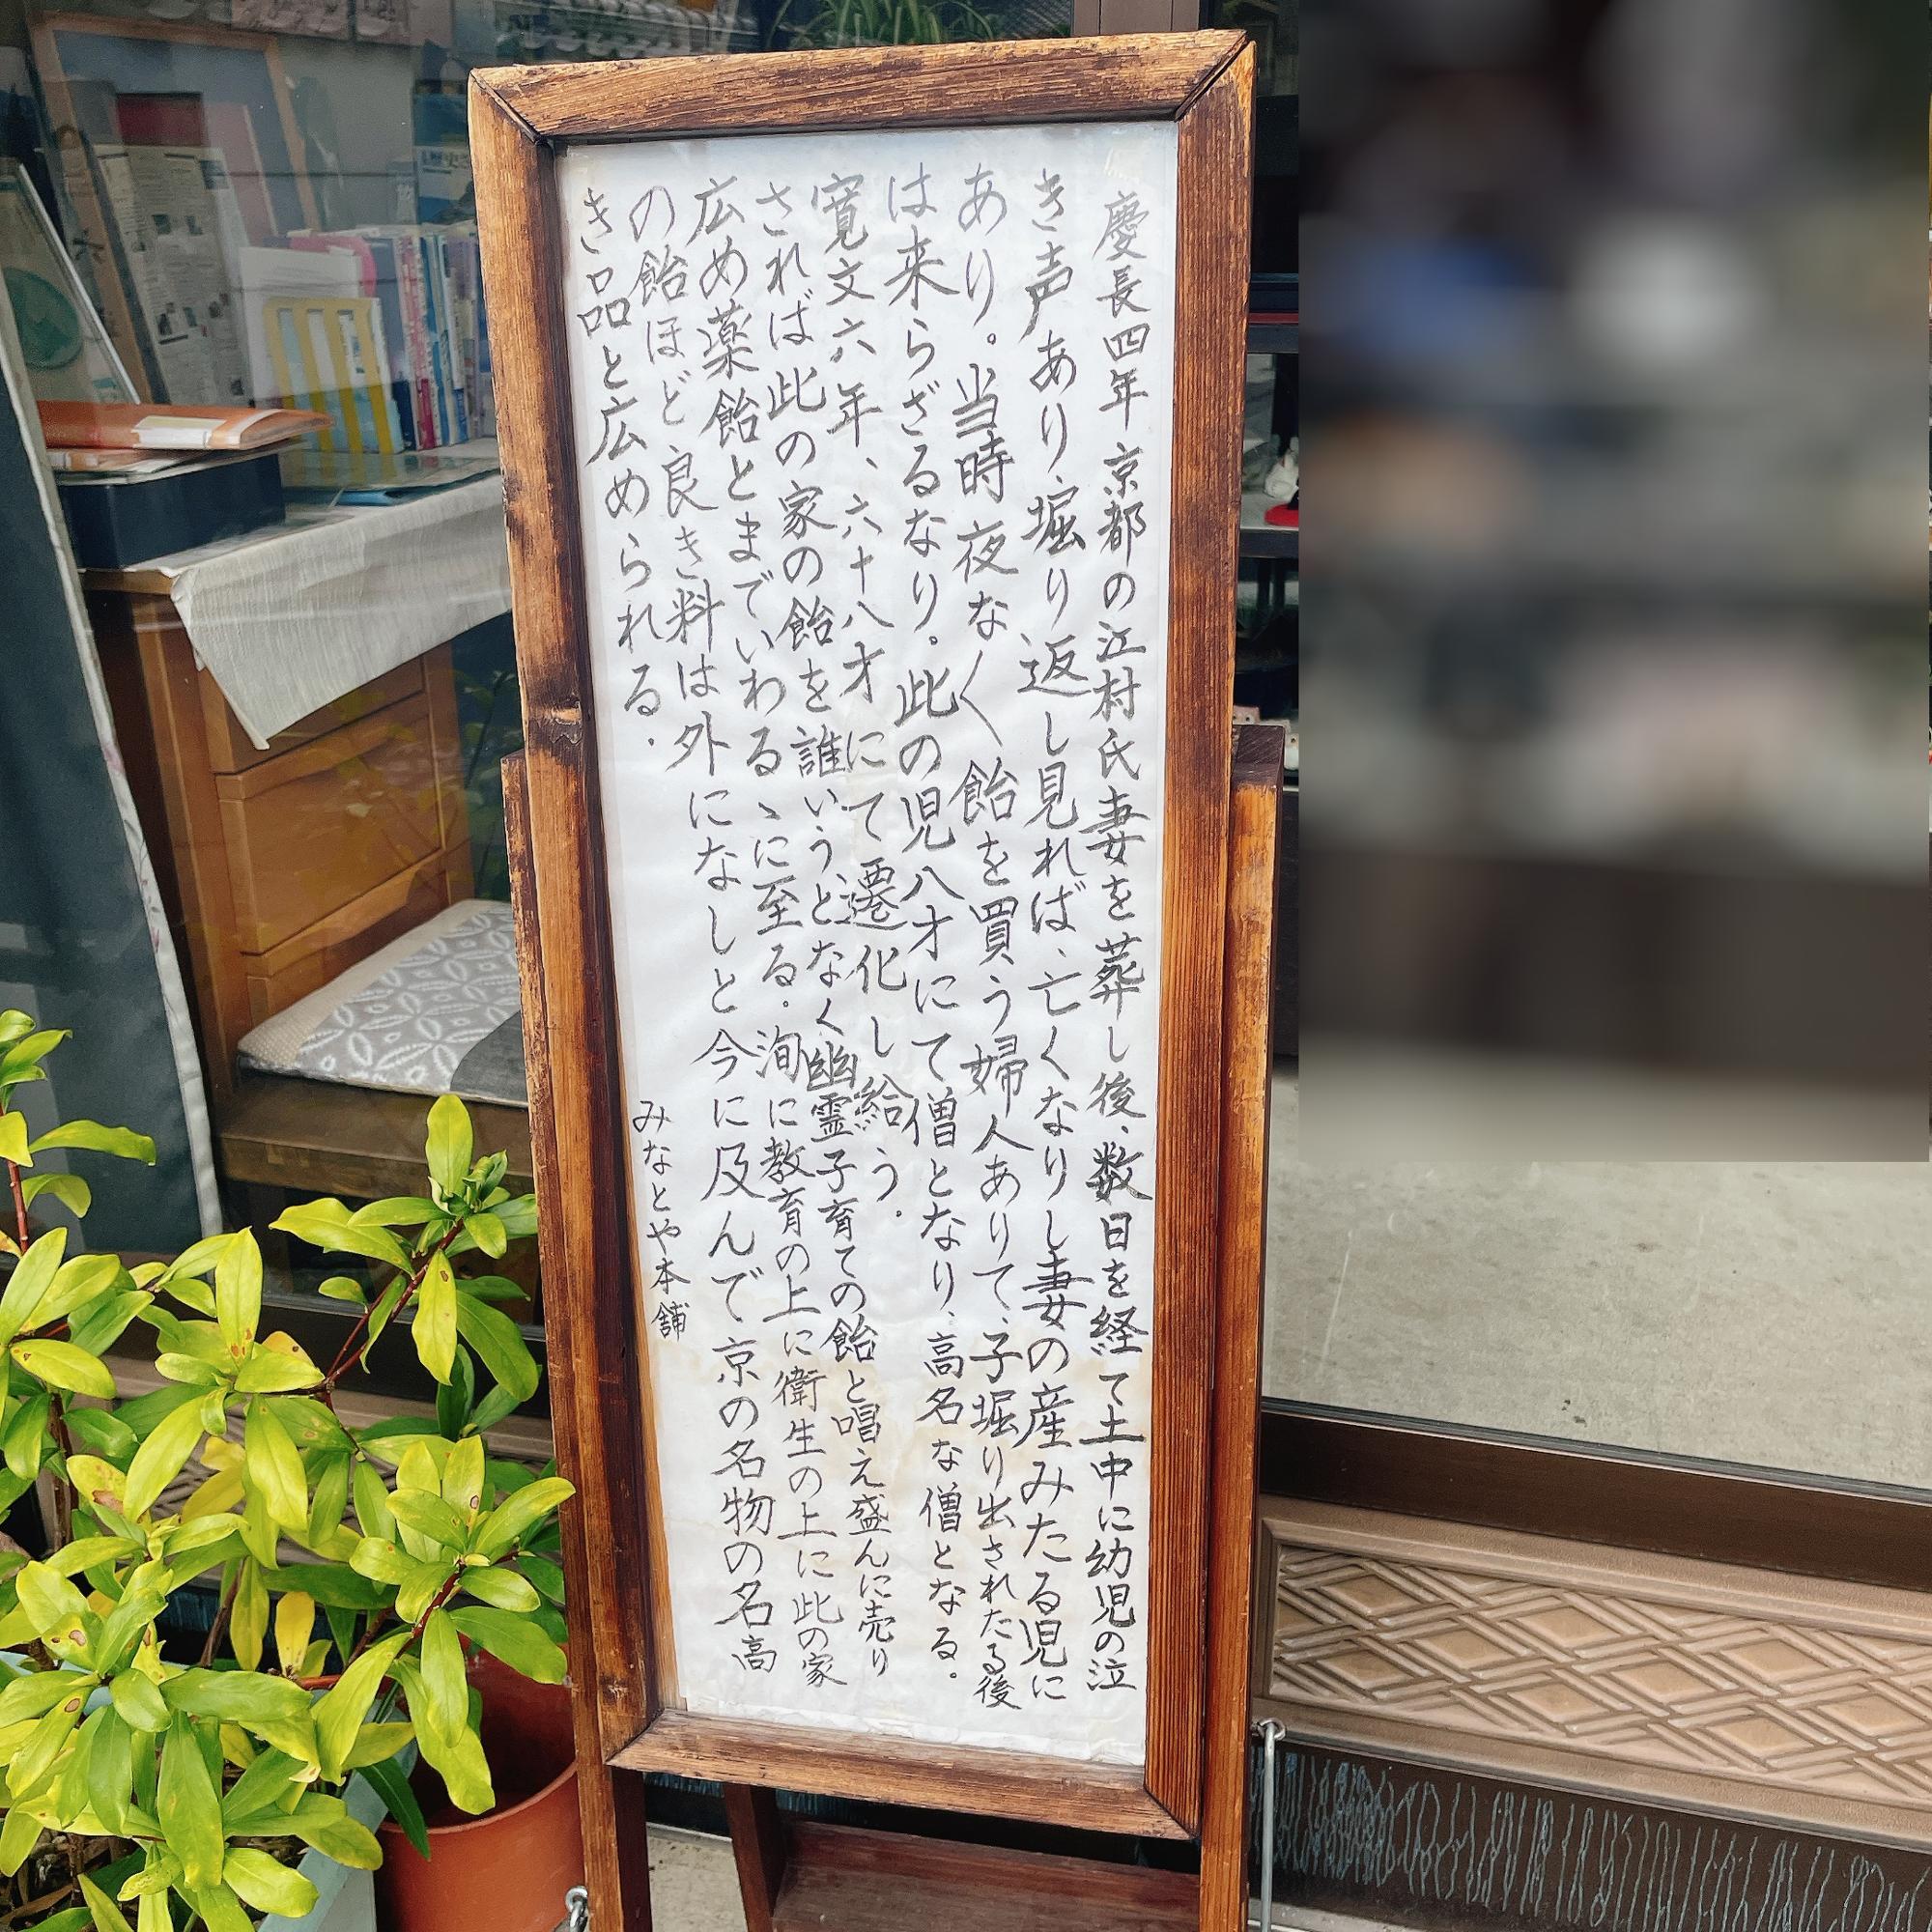 慶長四年京都の江村氏妻を葬し後、数日を経て土中に幼児の泣
き声あり、堀り返し見れば、亡くなりし妻の産みたる児に
あり。当時夜な〱飴を買う婦人ありて、子堀り出されたる後
は来らざるなり。此の児八才にて僧となり、高名な僧となる。
寛文六年、六十八才にて遷化し給う。
されば此の家の飴を誰いうとなく幽霊子育ての飴と唱え盛んに売り
広め薬飴とまでいわるゝに至る。洵に教育の上に衛生の上に此の家
の飴ほど良き料は外になしと今に及んで京の名物の名高
き品と広められる。
みなとや本舗